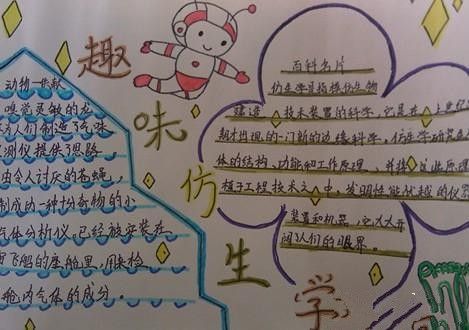 趣味仿生学
动物一贡献
嗅觉灵敏的龙
为人们制造了气味
测仪提供了思路
由令人讨厌的苍蝇，
制成功一种十分奇物的小
气体分析仪。已经被安装在
宙飞船的座舱里，用来检
舱内气体的成分。
百科名片
仿生学是指模仿生物
建造技术装置的科学，它是在上世纪
期才出现的一门新的边缘科学，仿生学研究生
体的结构、功能和工作原理，并将这些原理
植于工程技术之中，发明性能优越的仪
装置和机器，它大大开
阔了人们的眼界。